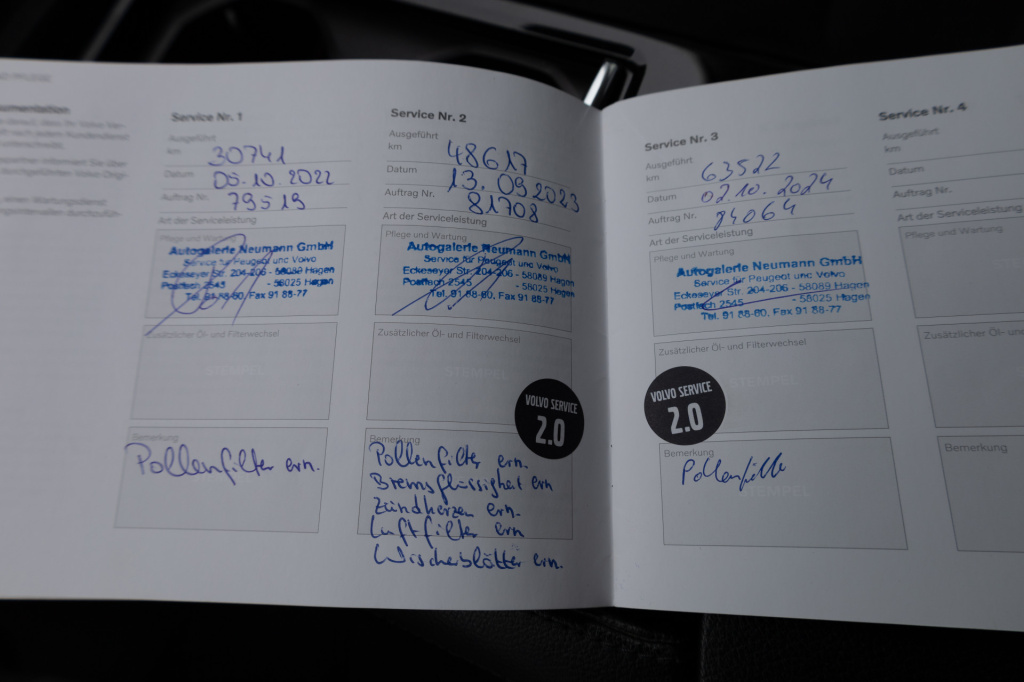 Service Nr. 1
Ausgeführt
km 30741
Datum 05.10.2022
Auftrag Nr. 79519
Art der Serviceleistung
Pflege und Wartung
Autogalerie Neumann GmbH
Service für Peugeot und Volvo
Eckeseyer Str. 204-206 - 58089 Hagen
Postfach 2545 - 58025 Hagen
Tel. 91 88-60, Fax 91 88-77
Zusätzlicher Öl- und Filterwechsel
STEMPEL
Bemerkung
Pollenfilter ern.
Service Nr. 2
Ausgeführt
km 48617
Datum 13.09.2023
Auftrag Nr. 81708
Art der Serviceleistung
Pflege und Wartung
Autogalerie Neumann GmbH
Service für Peugeot und Volvo
Eckeseyer Str. 204-206 - 58089 Hagen
Postfach 2545 - 58025 Hagen
Tel. 91 88-60, Fax 91 88-77
Zusätzlicher Öl- und Filterwechsel
STEMPEL
VOLVO SERVICE
2.0
Bemerkung
Pollenfilter ern.
Bremsflüssigkeit ern
Zündkerzen ern.
Luftfilter ern
Wischerblätter ern.
Service Nr. 3
Ausgeführt
km 63522
Datum 02.10.2024
Auftrag Nr. 84064
Art der Serviceleistung
Pflege und Wartung
Autogalerie Neumann GmbH
Service für Peugeot und Volvo
Eckeseyer Str. 204-206 - 58089 Hagen
Postfach 2545 - 58025 Hagen
Tel. 91 88-60, Fax 91 88-77
Zusätzlicher Öl- und Filterwechsel
STEMPEL
VOLVO SERVICE
2.0
Bemerkung
Pollenfilte
STEMPEL
Service Nr. 4
Ausgeführt
km
Datum
Auftrag Nr.
Art der Serviceleistung
Pflege und Wartung
Zusätzlicher Öl- und
Bemerkung